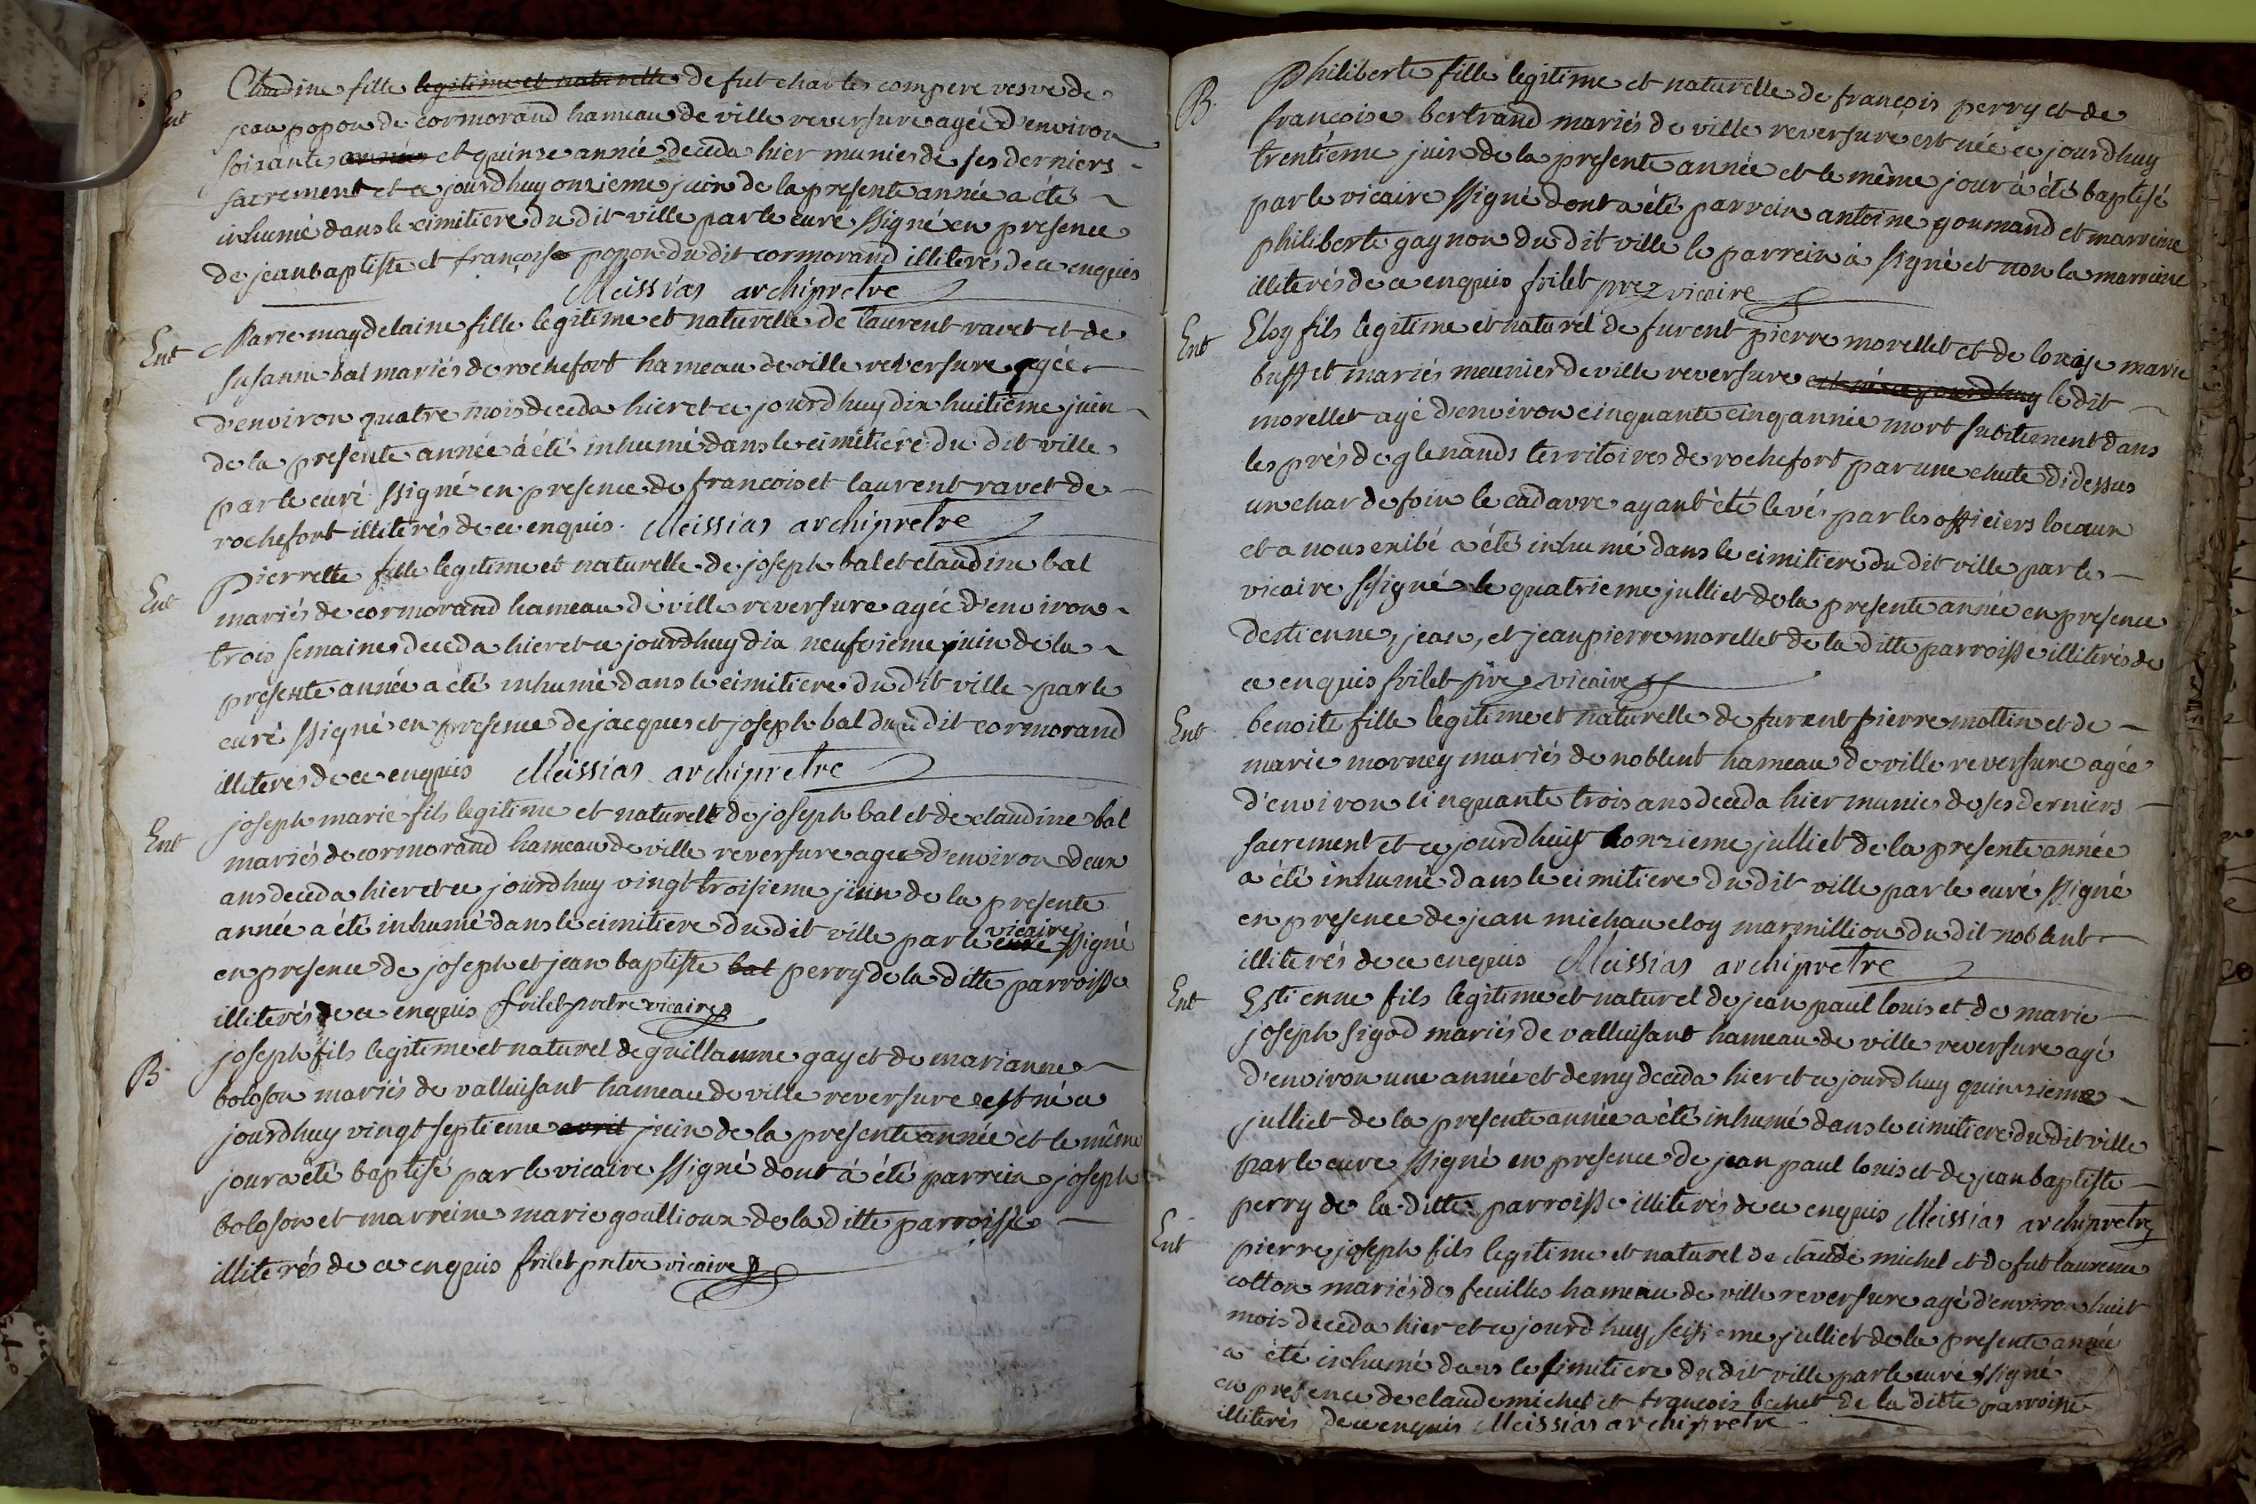 Ent
Claudine fille legitime et naturelle de fut charles compere vesve de
jean popon de cormorand hameau de ville reversure agée d'environ
soixante année et quinze année deceda hier munies de ses derniers
sacrement et ce jourdhuy onzieme juin de la presente année a été
inhumé dans le cimitiere du dit ville par le curé ssigné en presence
de jean baptiste et françois popon du dit cormorand illiterés de ce enquis
Meissias archipretre
Ent
Marie magdelaine fille legitime et naturelle de laurent ravet et de
susanne bal mariés de rochefort hameau de ville reversure agée
d'environ quatre mois deceda hier et ce jourdhuy dix huitième juin
de la presente année à été inhumé dans le cimitiere du dit ville
par le curé ssigné en presence de francois et laurent ravet de
rochefort illiterés de ce enquis. Meissias archipretre
Ent
Pierrette fille legitime et naturelle de joseph bal et claudine bal
mariés de cormorand hameau de ville reversure agée d'environ
trois semaines deceda hier et ce jourdhuy dix neufvieme juin de la
presente année a été inhumé dans le cimitiere du dit ville par le
curé ssigné en presence de jacques et joseph bal du dit cormorand
illiterés de ce enquis Meissias archipretre
Ent
joseph marie fils legitime et naturelle de joseph bal et de claudine bal
mariés de cormorand hameau de ville reversure agée d'environ deux
ans deceda hier et ce jourdhuy vingt troisieme juin de la presente
année a été inhumé dans le cimitiere du dit ville par le curé vicaire ssigné
en presence de joseph et jean baptiste bal perry de la ditte parroisse
illiterés de ce enquis frilet pretre vicaire
B.
joseph fils legitime et naturel de guillaume gay et de marianne
boloson mariés de valluisant hameau de ville reversure est né ce
jourdhuy vingt septieme avril juin de la presente année et le même
jour a été baptisé par le vicaire ssigné dont à été parrein joseph
boloson et marreine marie goullioux de la ditte parroisse
illiterés de ce enquis frilet pretre vicaire
B.
Philiberte fille legitime et naturelle de françois perry et de
francoise bertrand mariés de ville reversure est née ce jourdhuy
trentième juin de la presente année et le même jour à été baptisé
par le vicaire ssigné dont a été parrein antoine goumand et marreine
philiberte gagnon du dit ville le parrein à signé et non la marreine
illiterés de ce enquis frilet pre vicaire
Ent
Eloy fils legitime et naturel de furent pierre morellet et de louise marie
buffet mariés meunier de ville reversure est né ce jourdhuy le dit
morellet agé d'environ cinquante cinq année mort subitement dans
les prés de glenands territoires de rochefort par une chute didessus
un char de foin le cadavre ayant été levé par les officiers locaux
et a nous exibé a été inhumé dans le cimitiere du dit ville par le
vicaire ssigné le quatrieme julliet de la presente année en presence
destienne, jean, et jean pierre morellet de la ditte parroisse illiterés de
ce enquis frilet pre vicaire
Ent
benoite fille legitime et naturelle de furent pierre mottin et de
marie morney mariés de noblent hameau de ville reversure agée
d'environ cinquante trois ans deceda hier munies de ses derniers
sacrement et ce jourdhuy onzieme julliet de la presente année
a été inhumé dans le cimitiere du dit ville par le curé ssigné
en presence de jean michau eloy marmillion du dit noblent
illiterés de ce enquis Meissias archipretre
Ent
Estienne fils legitime et naturel de jean paul louis et de marie
joseph sigod mariés de valluisant hameau de ville reversure agé
d'environ une année et demy deceda hier et ce jourdhuy quinzieme
julliet de la presente année a été inhumé dans le cimitiere du dit ville
par le cure ssigné en presence de jean paul louis et de jean baptiste
perry de la ditte parroisse illiterés de ce enquis Meissias archipretre
Ent
pierre joseph fils legitime et naturel de claude michel et de fut laurence
cotton mariés des feuilles hameau de ville reversure agé d'environ huit
mois deceda hier et ce jourdhuy seisieme julliet de la presente année
a été inhumé dans le simitiere du dit ville par le curé ssigné
en presence de claude michel et francois bochet de la ditte parroisse
illiterés de ce enquis Meissias archipretre